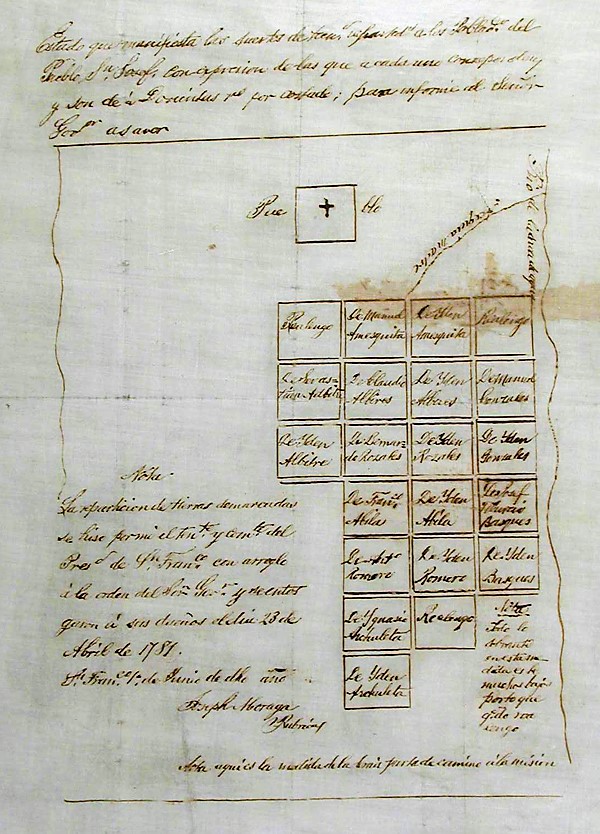 Estado que manifiesta las suertes de
Pueblo, Sn Josef, con expresion de las que a cada uno
y son de 200 por costado; para informe al Señor
Gorr asaver
Pue blo
Acequia madre
Rio de Guadalupe
Realengo
De Manuel
Amesquita
De Yden
Amesquita
Realengo
De Sevas-
tian Albitre
De Claudio
Albires
De Yden
Albires
De Manuel
Gonzales
De Yden
Albitre
De Bernar-
do Rozales
De Yden
Rozales
De Yden
Gonzales
De Franco
Abila
De Yden
Abila
De Josef
Tiburcio
Basques
De Anto
Romero
De Yden
Romero
De Yden
Basques
De Ygnasio
Archuleta
Realengo
De Yden
Archuleta
Nota
La reparticion de tierras demarcadas
se hiso por mi el Tente y comte del
Presо de Sn Franco con arreglo
á la orden del Sor Gorr y se entre
garon á sus dueños el dia 23 de
Abril de 1781.
Sn Franco de Junio de dho año
Joseph Moraga
Rubrica
Nota
Todo lo
sobrante
en esta me-
es
muchos bajos
por lo que
quedo rea
lengo
Nota aqui es la medida de la parte de camino á la mision